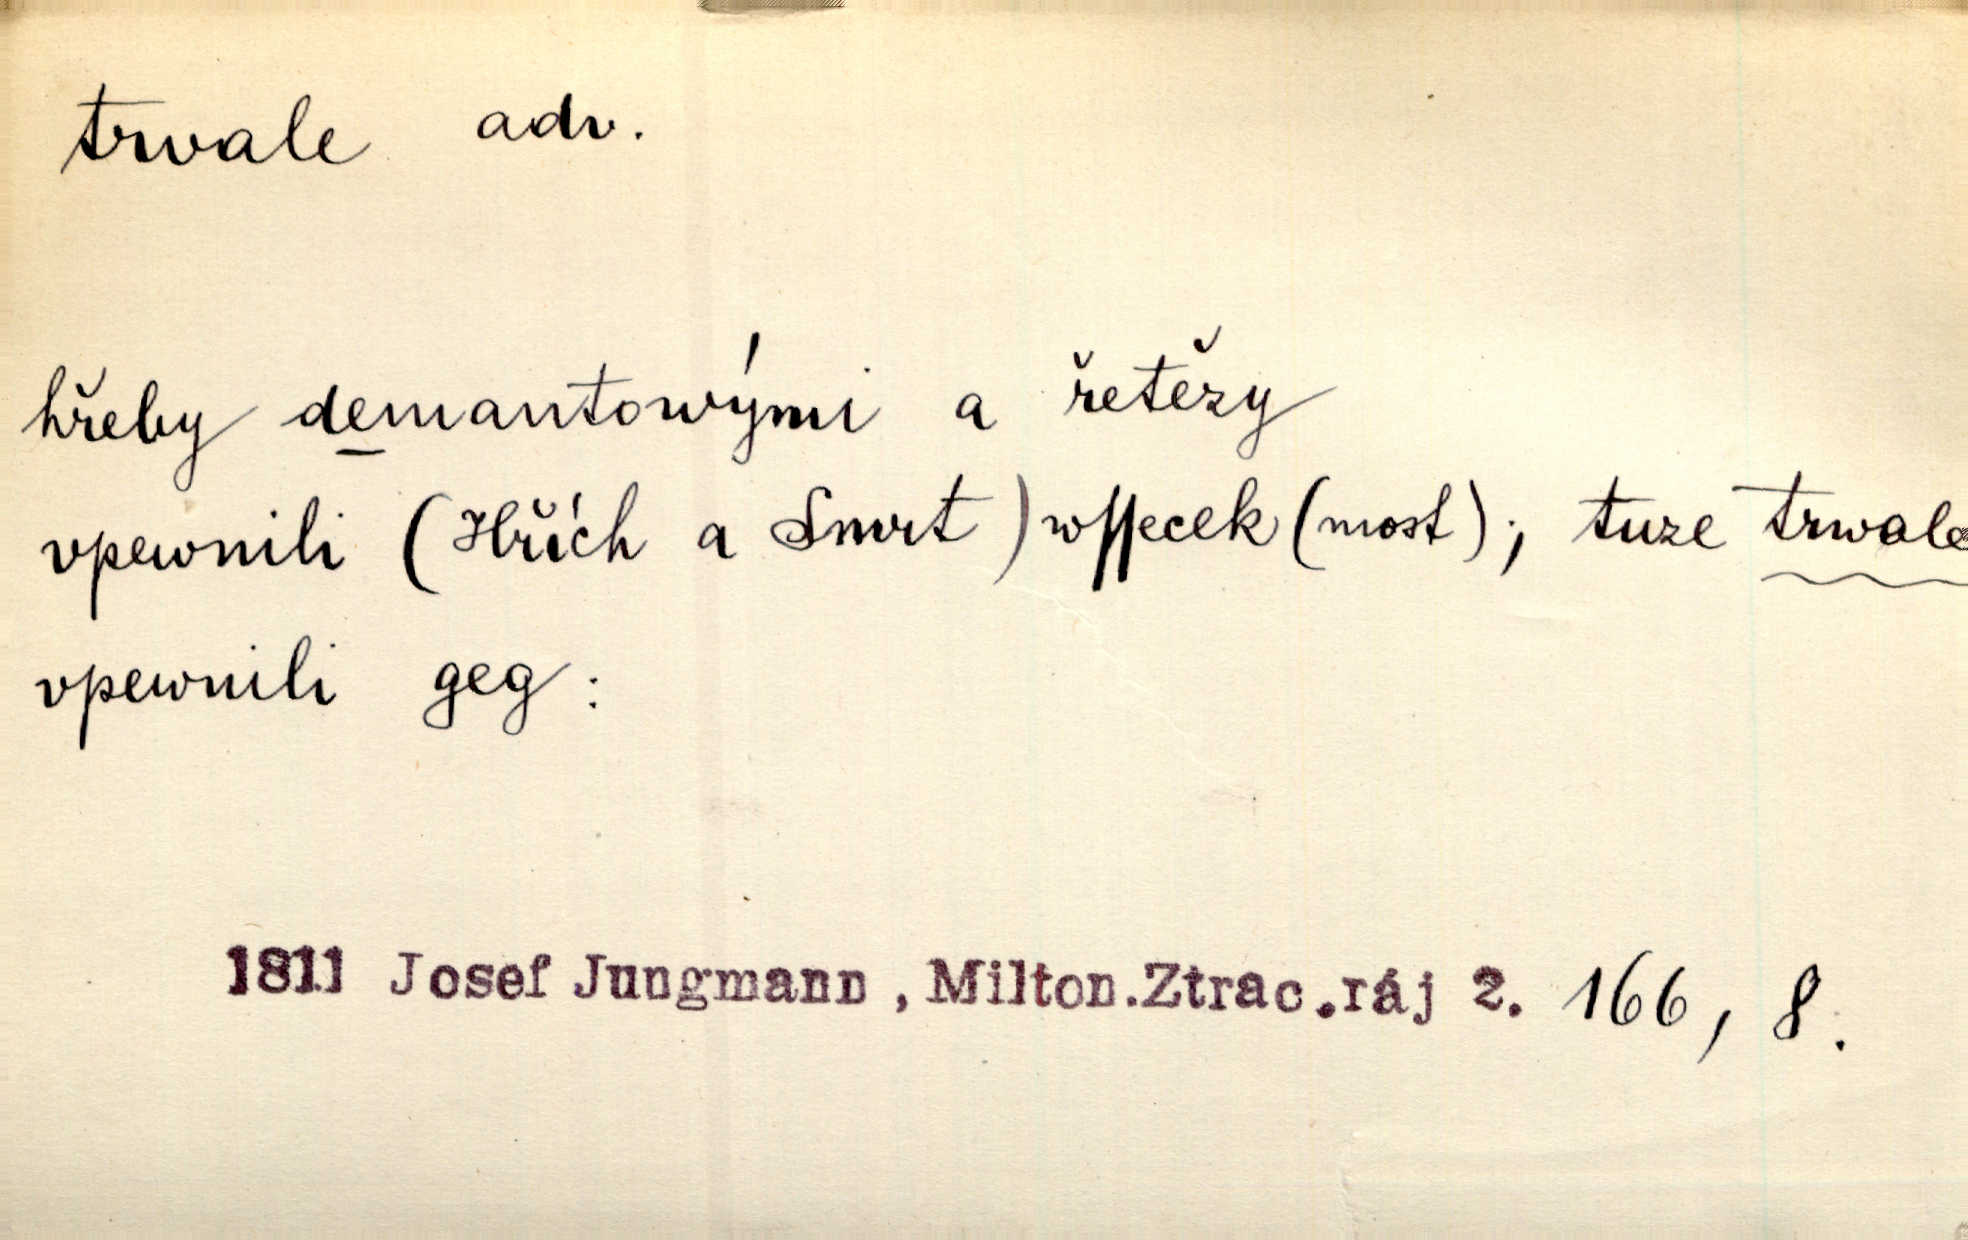 trvale adv.
hřeby demantowými a řetězy
vpewnili (Hřích a Smrt) wſſecek (most); tuze trwale
vpewnili geg:
1811 Josef Jungmann, Milton.Ztrac.ráj 2. 166, 8.